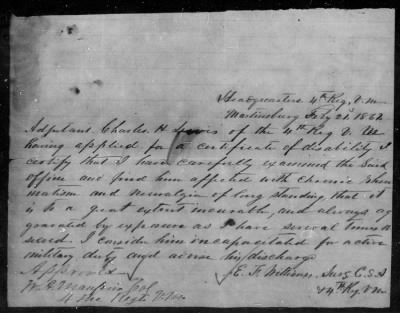 Headquarters 4th Reg. V. M
Martinsburg Feby 21. 1862
Adjutant Charles H. Lewis of the 4th Reg V. M
having applied for a certificate of disability I
certify that I have carefully examined the said
officer and find him affected with chronic rheu
matism and neuralgia of long standing that it
is to a great extent incurable, and always ag
gravated by exposure as I have several times wit
nessed. I consider him incapacitated for active
military duty and advise his discharge
Approved
E. F. Surg C.S.A
Col 4th Reg. V. M
4